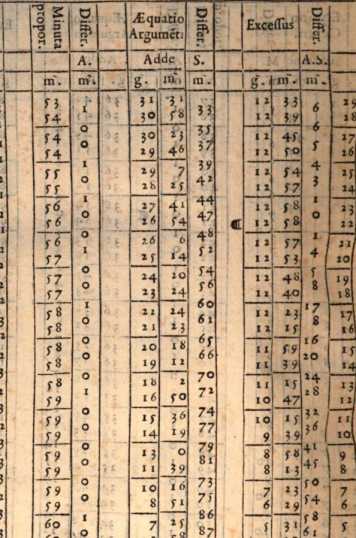 Minuta propor. Differ. Æquatio Argumẽt: Differ. Excessus Differ.
A. Adde S. A.S.
m. m. g. m. m. g. m. m.
53 31 31 12 33 29
1 33 6
54 30 58 12 39 28
0 35 6
54 30 23 12 45 27
0 37 5
54 29 46 12 50 26
1 39 4
55 29 7 12 54 25
0 42 3
55 28 25 12 57 24
1 44 1
56 27 41 12 58 23
0 47 0
56 26 54 12 58 22
0 48 1
56 26 6 12 57 21
1 52 4
57 25 14 12 53 20
0 54 5
57 24 20 12 48 19
0 56 8
57 23 24 12 40 18
1 60 17
58 24 12 23 17
0 61 8
58 21 23 12 15 16
0 65 16
58 20 18 11 59 15
0 66 20
58 19 12 11 39 14
0 70 24
58 18 2 11 15 13
1 72 28
59 16 50 10 47 12
0 74 32
59 15 36 10 15 11
0 77 36
59 14 19 9 39 10
0 79 41
59 13 0 8 58 9
0 81 45
59 11 39 8 13 8
0 73 50
59 10 16 7 23 7
0 75 54
59 8 51 6 29 6
1 86 58
60 7 25 5 31 5
0 87 61